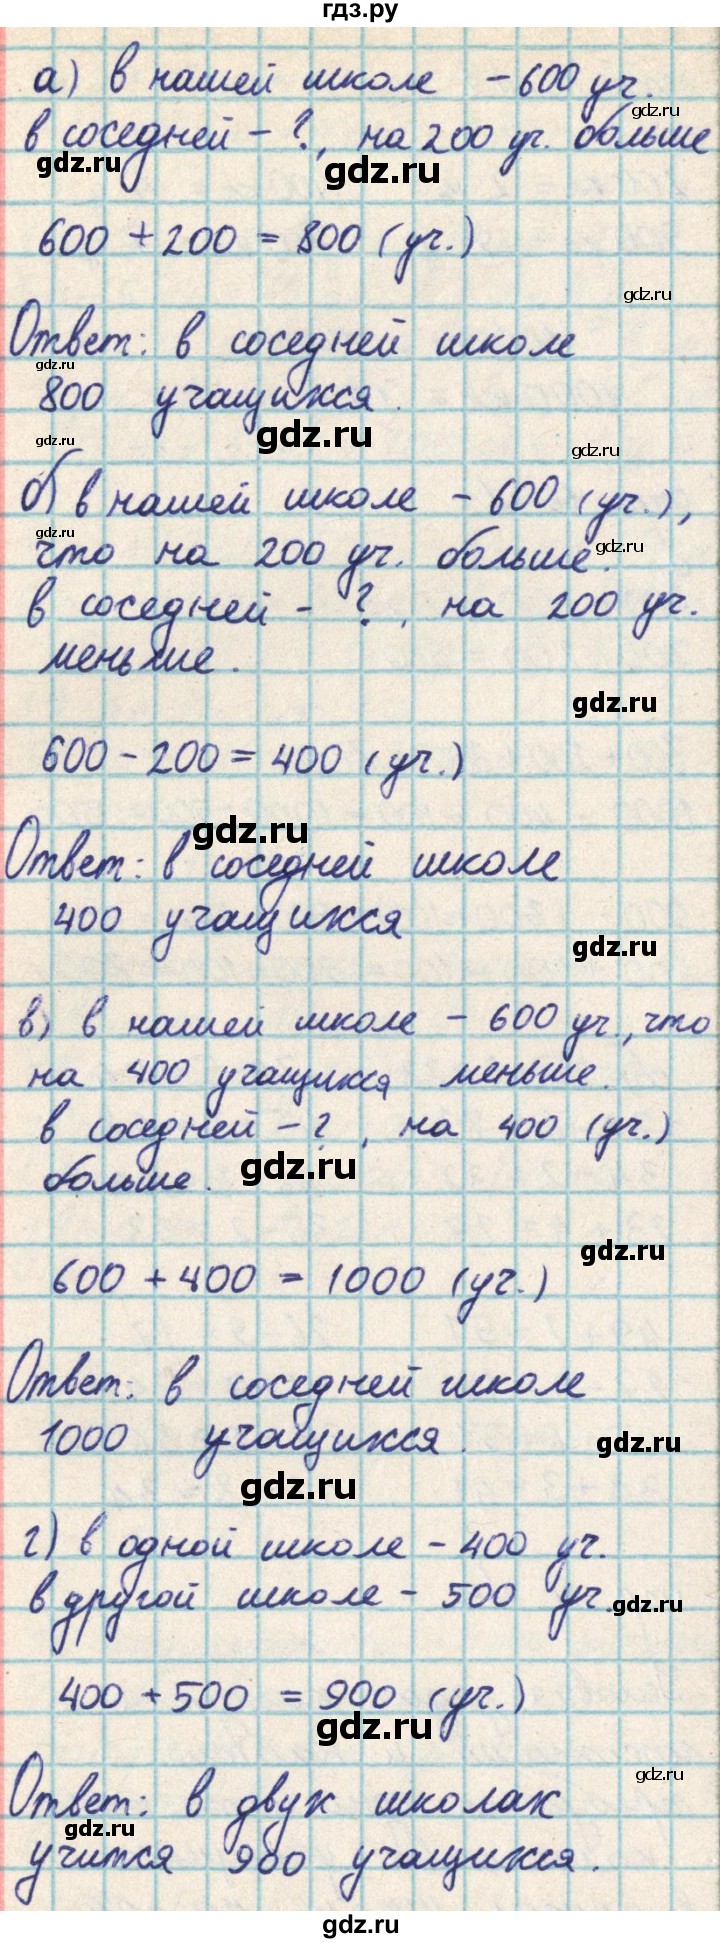 гдз.ру
а) в нашей школе - 600 уч.
gdz.ru
в соседней - ?, на 200 уч. больше
gdz.ru
gdz.ru
600 + 200 = 800 (уч.)
gdz.ru
Ответ: в соседней школе
gdz.ru
800 учащихся.
gdz.ru
gdz.ru
gdz.ru
б) в нашей школе - 600 (уч.),
gdz.ru
что на 200 уч. больше.
gdz.ru
в соседней - ?, на 200 уч.
меньше.
gdz.ru
600 - 200 = 400 (уч.)
gdz.ru
Ответ: в соседней школе
400 учащихся
gdz.ru
в) в нашей школе - 600 уч., что
на 400 учащихся меньше.
в соседней - ?, на 400 (уч.)
gdz.ru
больше.
gdz.ru
600 + 400 = 1000 (уч.)
Ответ: в соседней школе
1000 учащихся.
gdz.ru
gdz.ru
г) в одной школе - 400 уч.
в другой школе - 500 уч.
gdz.ru
400 + 500 = 900 (уч.)
gdz.ru
gdz.ru
Ответ: в двух школах
gdz.ru
учится 900 учащихся.
gdz.ru